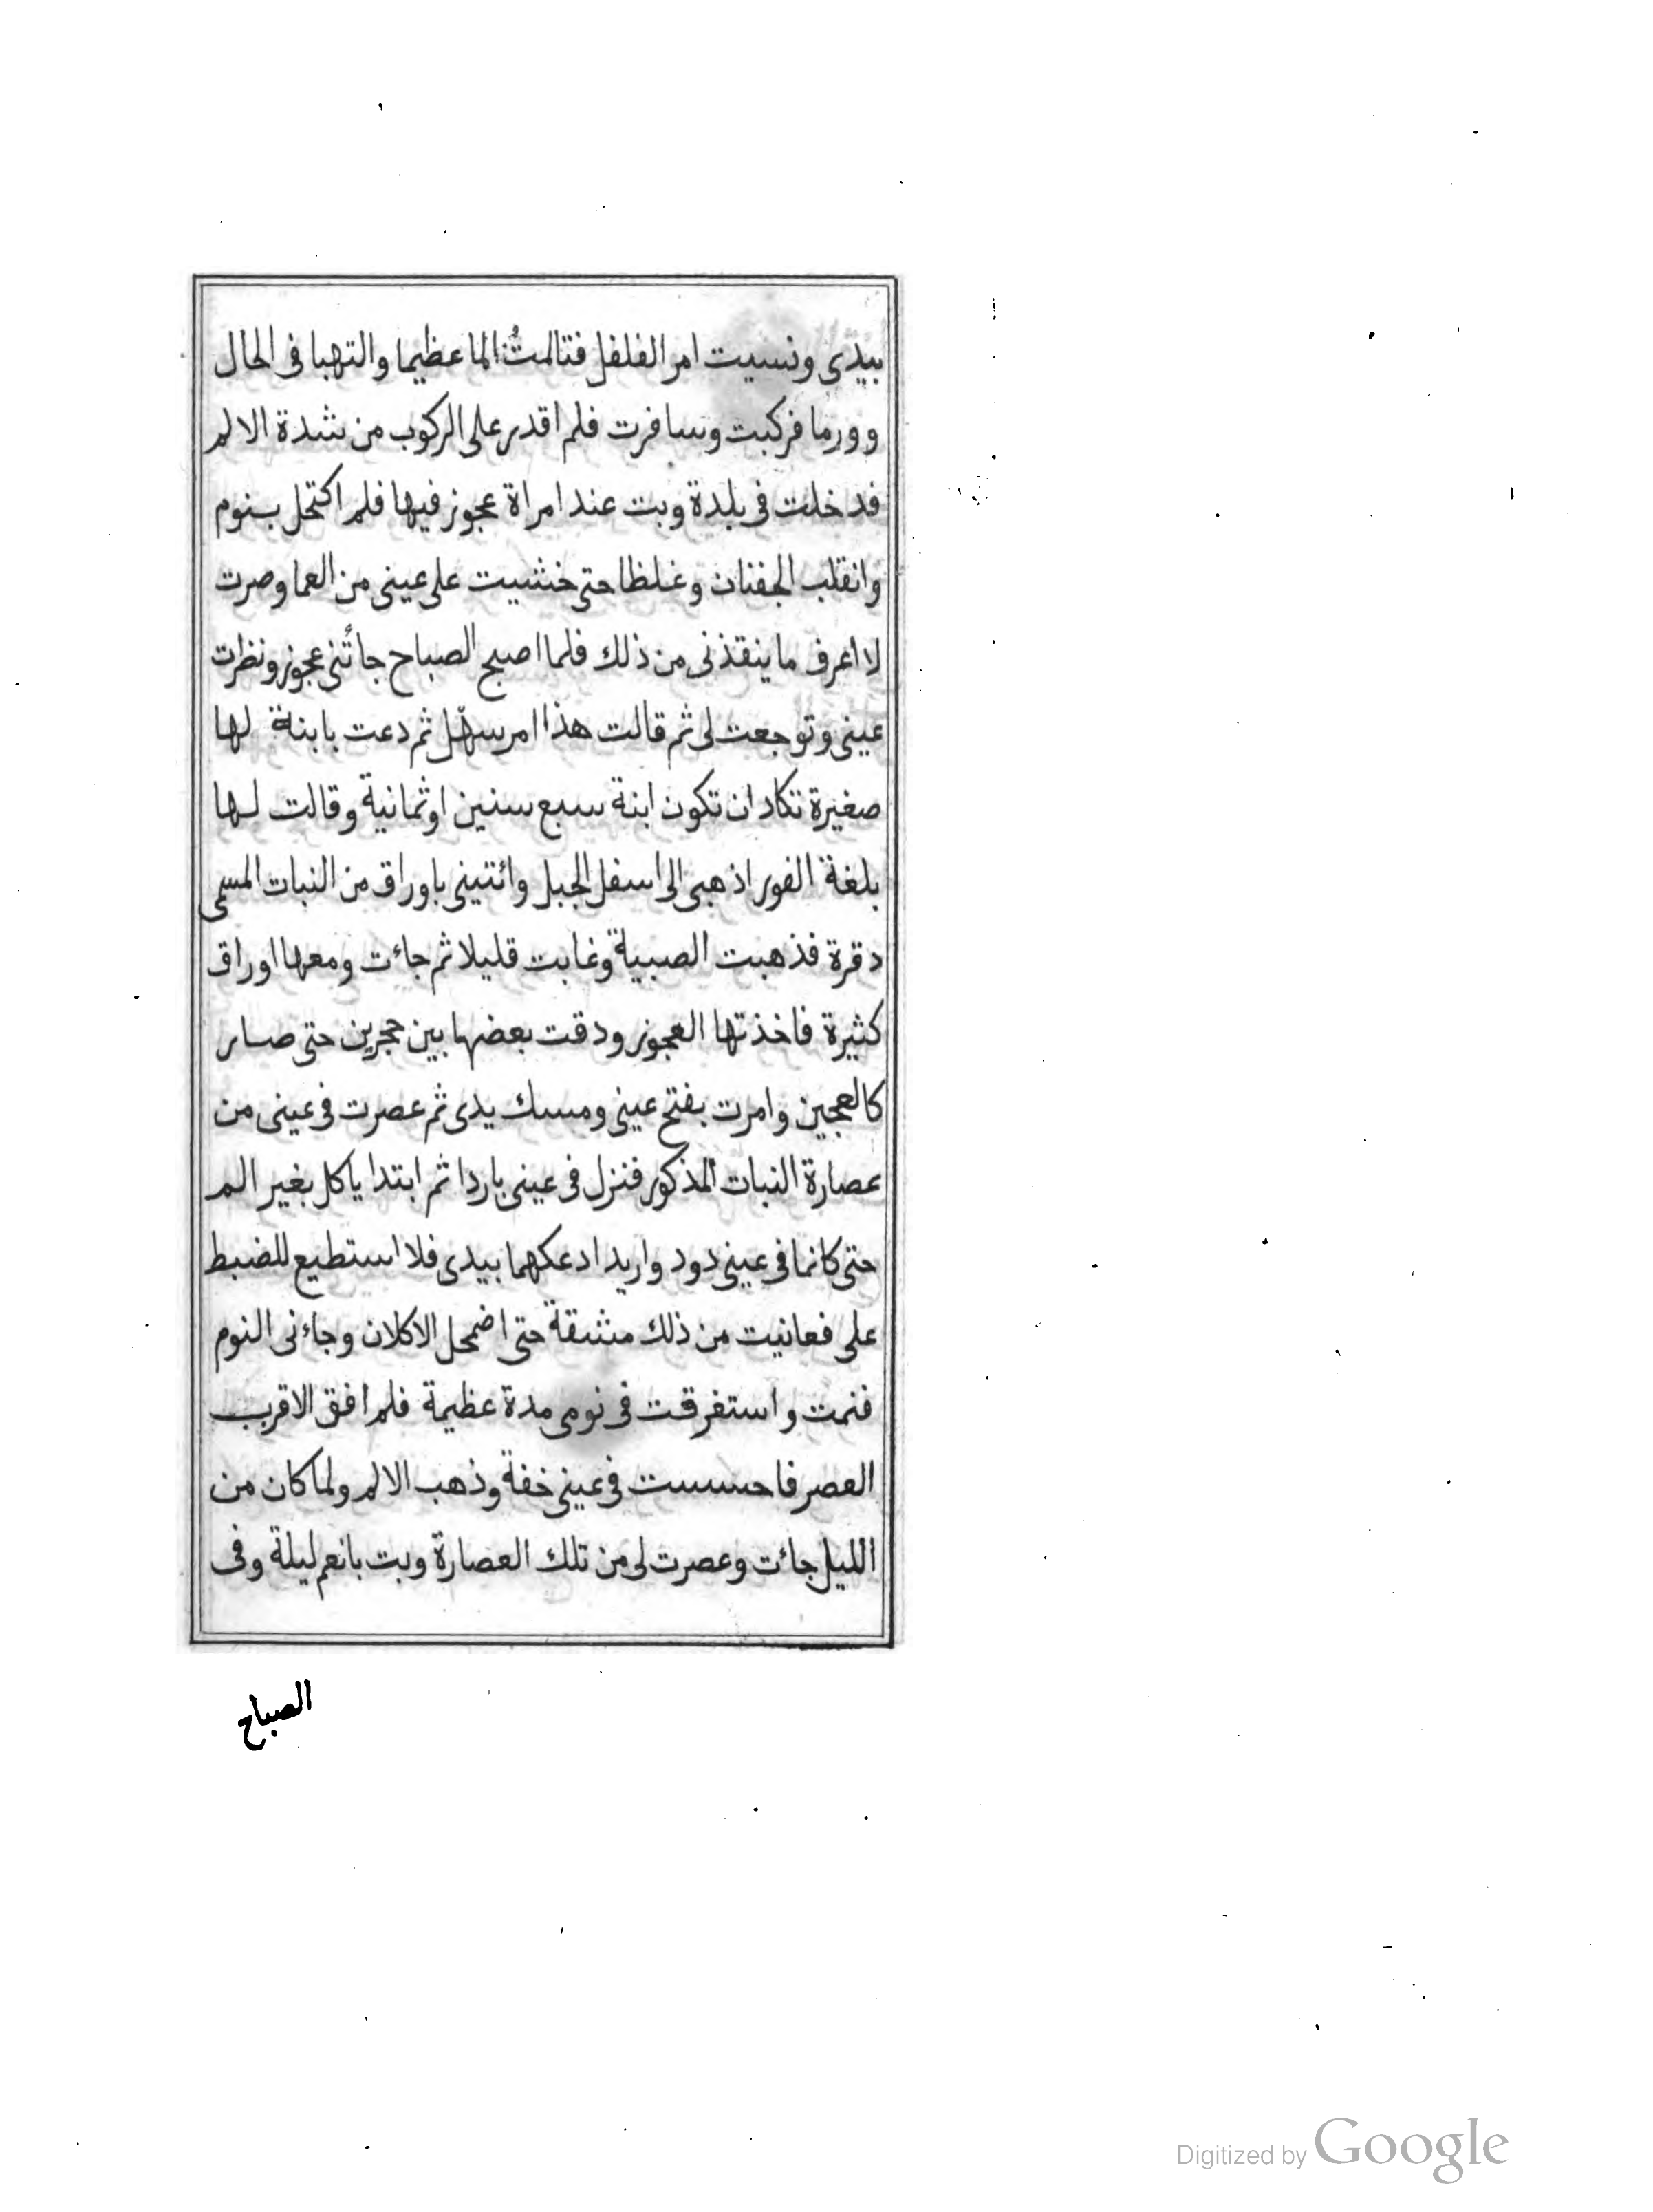 بيدى ونسيت امر الفلفل فتالمتُ الما عظيما والتهبا فى الحال
وورما فركبت وسافرت فلم اقدر على الركوب من شدة الالم
فدخلت فى بلدة وبت عند امراة عجوز فيها فلم اكتحل بنوم
وانقلب الجفنان وغلظا حتى خشيت على عينى من العما وصرت
لا اعرف ما ينقذنى من ذلك فلما اصبح الصباح جائتنى عجوز ونظرت
عينى وتوجعت لى ثم قالت هذا امر سهل ثم دعت بابنة لها
صغيرة تكاد ان تكون ابنة سبع سنين او ثمانية وقالت لها
بلغة الفور اذهبى الى اسفل الجبل وائتينى باوراق من النبات المسمى
دقرة فذهبت الصبية وغابت قليلا ثم جاءت ومعها اوراق
كثيرة فاخذتها العجوز ودقت بعضها بين حجرين حتى صار
كالعجين وامرت بفتح عينى ومسك يدى ثم عصرت فى عينى من
عصارة النبات المذكور فنزل فى عينى باردا ثم ابتدا ياكل بغير الم
حتى كانما فى عينى دود واريد ادعكهما بيدى فلا استطيع للضبط
على فعانيت من ذلك مشقة حتى اضمحل الاكلان وجاءنى النوم
فنمت واستغرقت فى نومى مدة عظيمة فلم افق الا قرب
العصر فاحسست فى عينى خفة وذهب الالم ولما كان من
الليل جائت وعصرت لى من تلك العصارة وبت بانعم ليلة وفى
الصباح
Digitized by Google